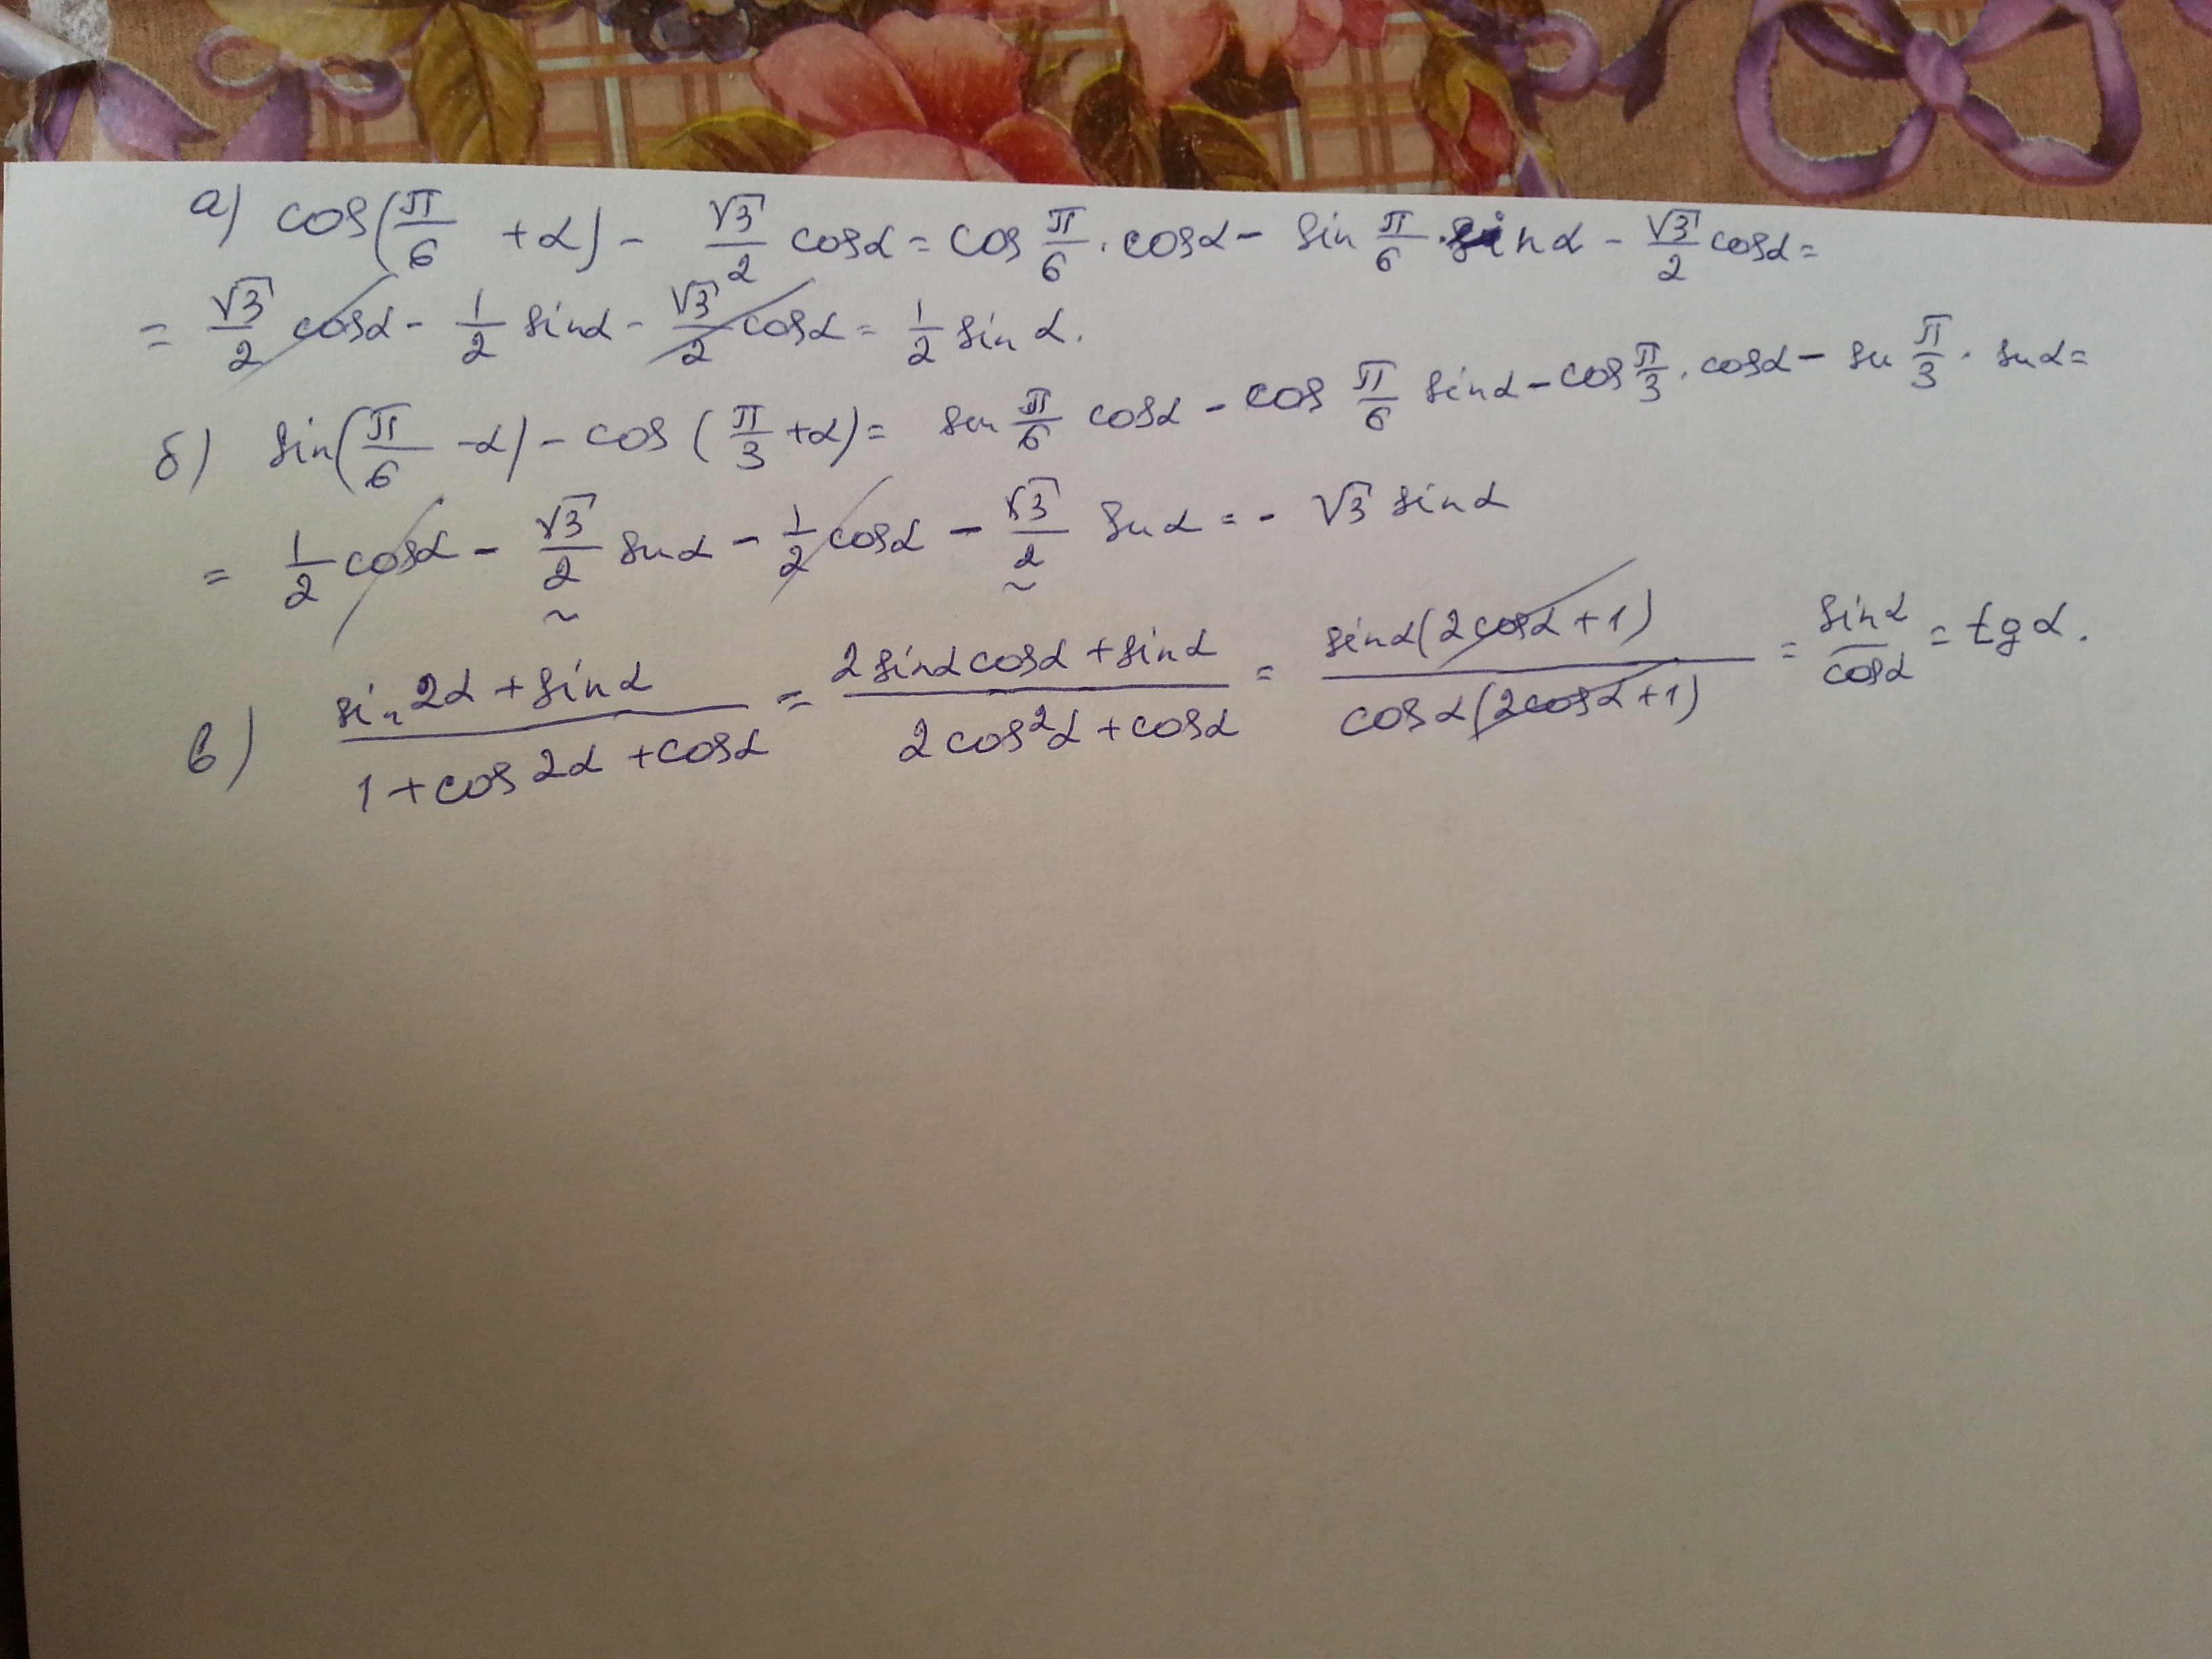 а) cos(π/6 + α) - √3/2 cosα = cos π/6 · cosα - sin π/6 · sin α - √3/2 cosα =
= √3/2 cosα - 1/2 sinα - √3/2 cosα = 1/2 sin α.
б) sin(π/6 - α) - cos (π/3 + α) = sin π/6 cosα - cos π/6 sinα - cos π/3 · cosα - sin π/3 · sinα =
= 1/2 cosα - √3/2 sinα - 1/2 cosα - √3/2 sinα = - √3 sinα
в) (sin 2α + sinα)/(1 + cos 2α + cosα) = (2 sinα cosα + sinα)/(2 cos²α + cosα) = (sinα(2cosα + 1))/(cosα(2cosα + 1)) = sinα/cosα = tgα.